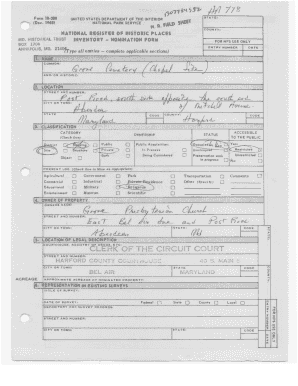 Form 10-300
(Dec. 1968)
UNITED STATES DEPARTMENT OF THE INTERIOR
NATIONAL PARK SERVICE
STATE:
NATIONAL REGISTER OF HISTORIC PLACES
INVENTORY - NOMINATION FORM
COUNTY:
MD. HISTORICAL TRUST
BOX 1704
ANNAPOLIS, MD. 21404
FOR NPS USE ONLY
ENTRY NUMBER DATE
(Type all entries - complete applicable sections)
1. NAME
COMMON:
Grove Cemetery (Chapel Site)
AND/OR HISTORIC:
2. LOCATION
STREET AND NUMBER:
Post Road, south side opposite the south side
CITY OR TOWN:
Aberdeen of Mitchell House
STATE
Maryland
COUNTY:
Harford
CODE
3. CLASSIFICATION
CATEGORY
(Check One)
OWNERSHIP
STATUS
ACCESSIBLE
TO THE PUBLIC
District
Site
Building
Structure
Object
Public
Private
Both
Public Acquisition:
In Process
Being Considered
Occupied
Unoccupied
Preservation work
in progress
Yes:
Restricted
Unrestricted
No
PRESENT USE (Check One or More as Appropriate)
Agricultural
Commercial
Educational
Entertainment
Government
Industrial
Military
Museum
Park
Private Residence
Religious
Scientific
Transportation
Other (Specify)
Comments
4. OWNER OF PROPERTY
OWNERS NAME:
Grove Presbyterian Church
STREET AND NUMBER:
East Bel Air Ave and Post Road
CITY OR TOWN:
Aberdeen
STATE:
Md
CODE
5. LOCATION OF LEGAL DESCRIPTION
COURTHOUSE, REGISTRY OF DEEDS, ETC:
CLERK OF THE CIRCUIT COURT
STREET AND NUMBER:
HARFORD COUNTY COURTHOUSE
CITY OR TOWN:
BEL AIR
STATE
MARYLAND
CODE
ACREAGE
APPROXIMATE ACREAGE OF NOMINATED PROPERTY:
6. REPRESENTATION IN EXISTING SURVEYS
TITLE OF SURVEY:
DATE OF SURVEY:
Federal
State
County
Local
DEPOSITORY FOR SURVEY RECORDS:
STREET AND NUMBER:
CITY OR TOWN:
STATE:
CODE